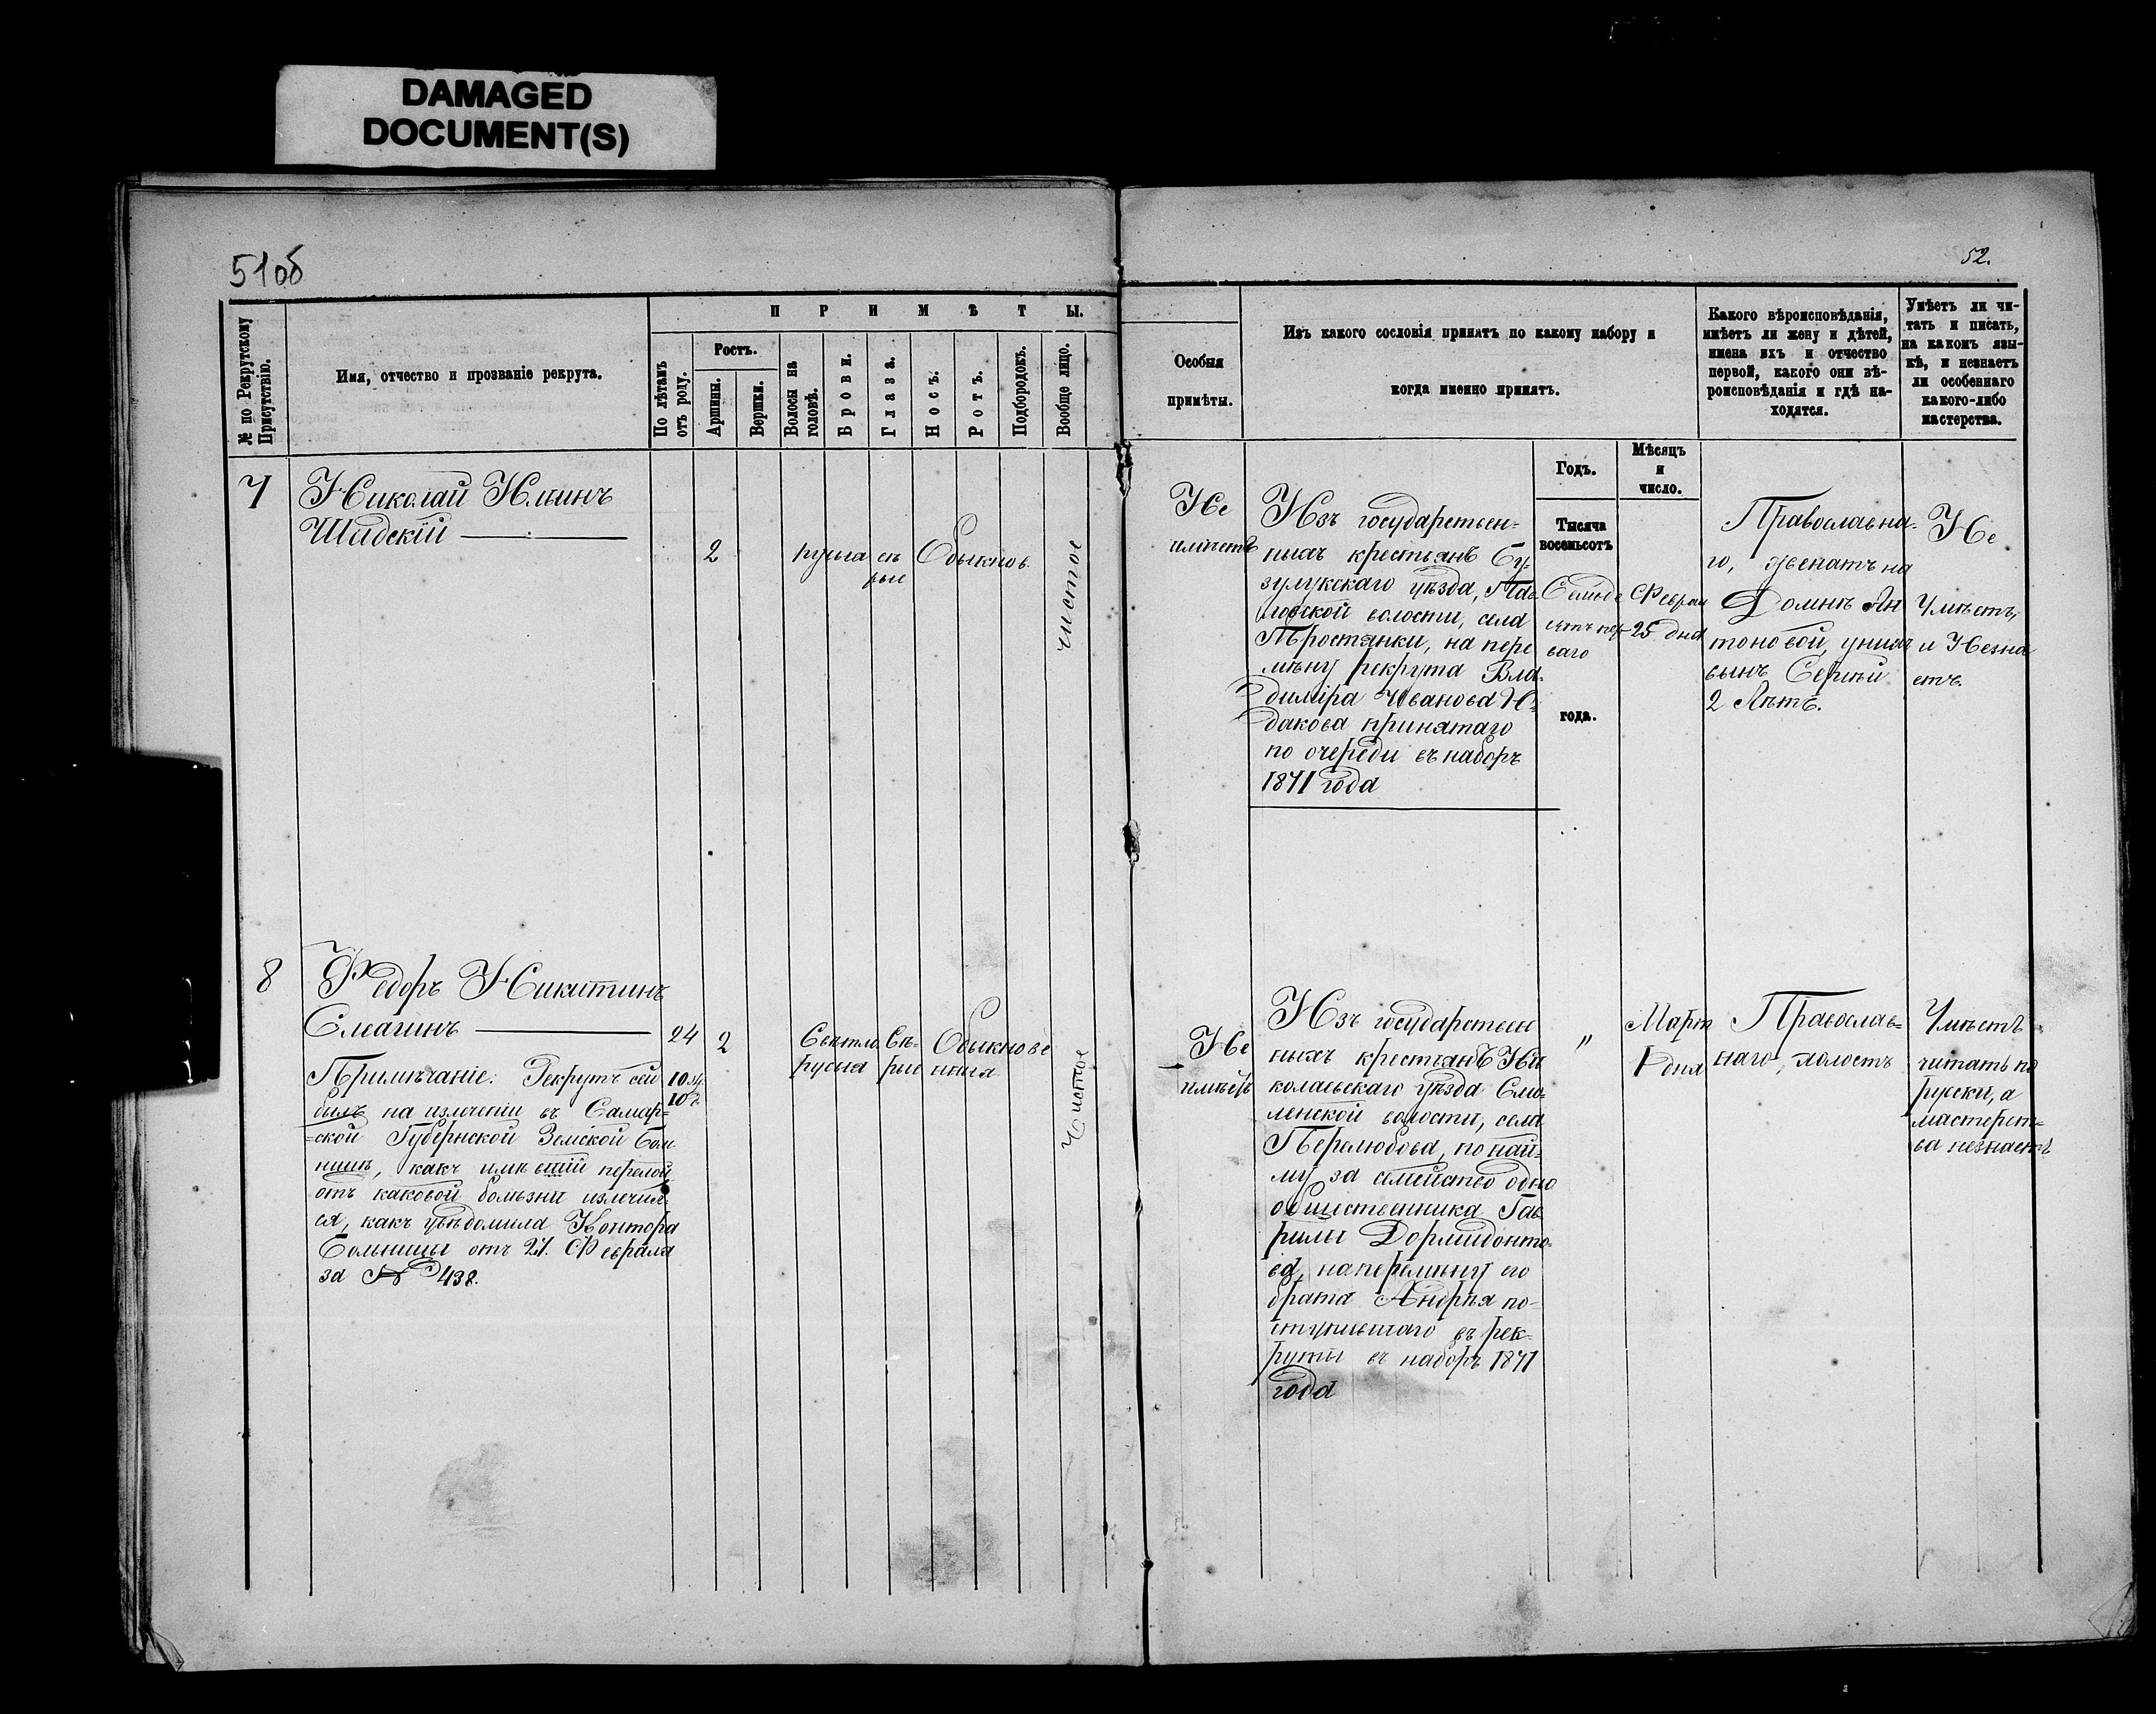 DAMAGED
DOCUMENT(S)
51об
52.
№ по Рекрутскому
Присутствію.
Имя, отчество и прозваніе рекрута.
ПРИМѢТЫ.
По лѣтамъ
отъ роду.
Ростъ.
Аршины.
Вершки.
Волосы на
головѣ.
Брови.
Глаза.
Носъ.
Ротъ.
Подбородокъ.
Вообще лицо.
Особыя
примѣты.
Изъ какого сословія принятъ по какому набору и
когда именно принятъ.
Какого вѣроисповѣданія,
имѣетъ ли жену и дѣтей,
имена ихъ и отчество
первой, какого они вѣ-
роисповѣданія и гдѣ на-
ходятся.
Умѣетъ ли чи-
тать и писать,
на какомъ язы-
кѣ, и незнаетъ
ли особеннаго
какого-либо
мастерства.
Годъ.
Мѣсяцъ
и
число.
7
Николай Ильинъ
Шадскій
2
русыя
сѣ
рые
Обыкнов.
чистое
Не
имѣетъ
Изъ государствен-
ныхъ крестьянъ Бу-
зулукскаго уѣзда, Пав
ловской волости, села
Простянки, на пере
мѣну рекрута Вла-
диміра Иванова Ю-
дакова принятаго
по очереди въ наборъ
1871 года
Тысяча
восемьсотъ
Семьде
сятъ пер-
ваго
года.
Феврал
25 дня
Православна-
го, женатъ на
Домнѣ Ан
тоновой, у нихъ
сынъ Сергѣй
2 Лѣтъ.
Не
Умѣетъ,
и Незна
етъ.
8
Федоръ Никитинъ
Смагинъ
24
2
Свѣтло
русыя
Сѣ-
рые
Обыкнове
нныя
Чистое
Примѣчаніе: Рекрутъ сей
былъ на излеченіи въ Самар-
=ской Губернской Земской Бол
ницѣ, какъ имѣвшій перелой
отъ каковой болѣзни излечил-
ся, какъ увѣдомила Контора
Больницы отъ 27. Февраля
за № 438.
Не
имѣетъ
Изъ государствен
ныхъ крестьянъ Ни
колаевскаго уѣзда Смо-
ленской волости, села
Перелюбова, по най-
му за семейство одно
общественника Гав
рилы Дормидонто-
ва, на перемѣну его
брата Андрея по-
ступившаго въ рек-
руты въ наборъ 1871
года
"
Март
1 дня
Православ=
наго, холостъ
Умѣетъ
читать по
русски, а
мастерст-
ва незнаетъ